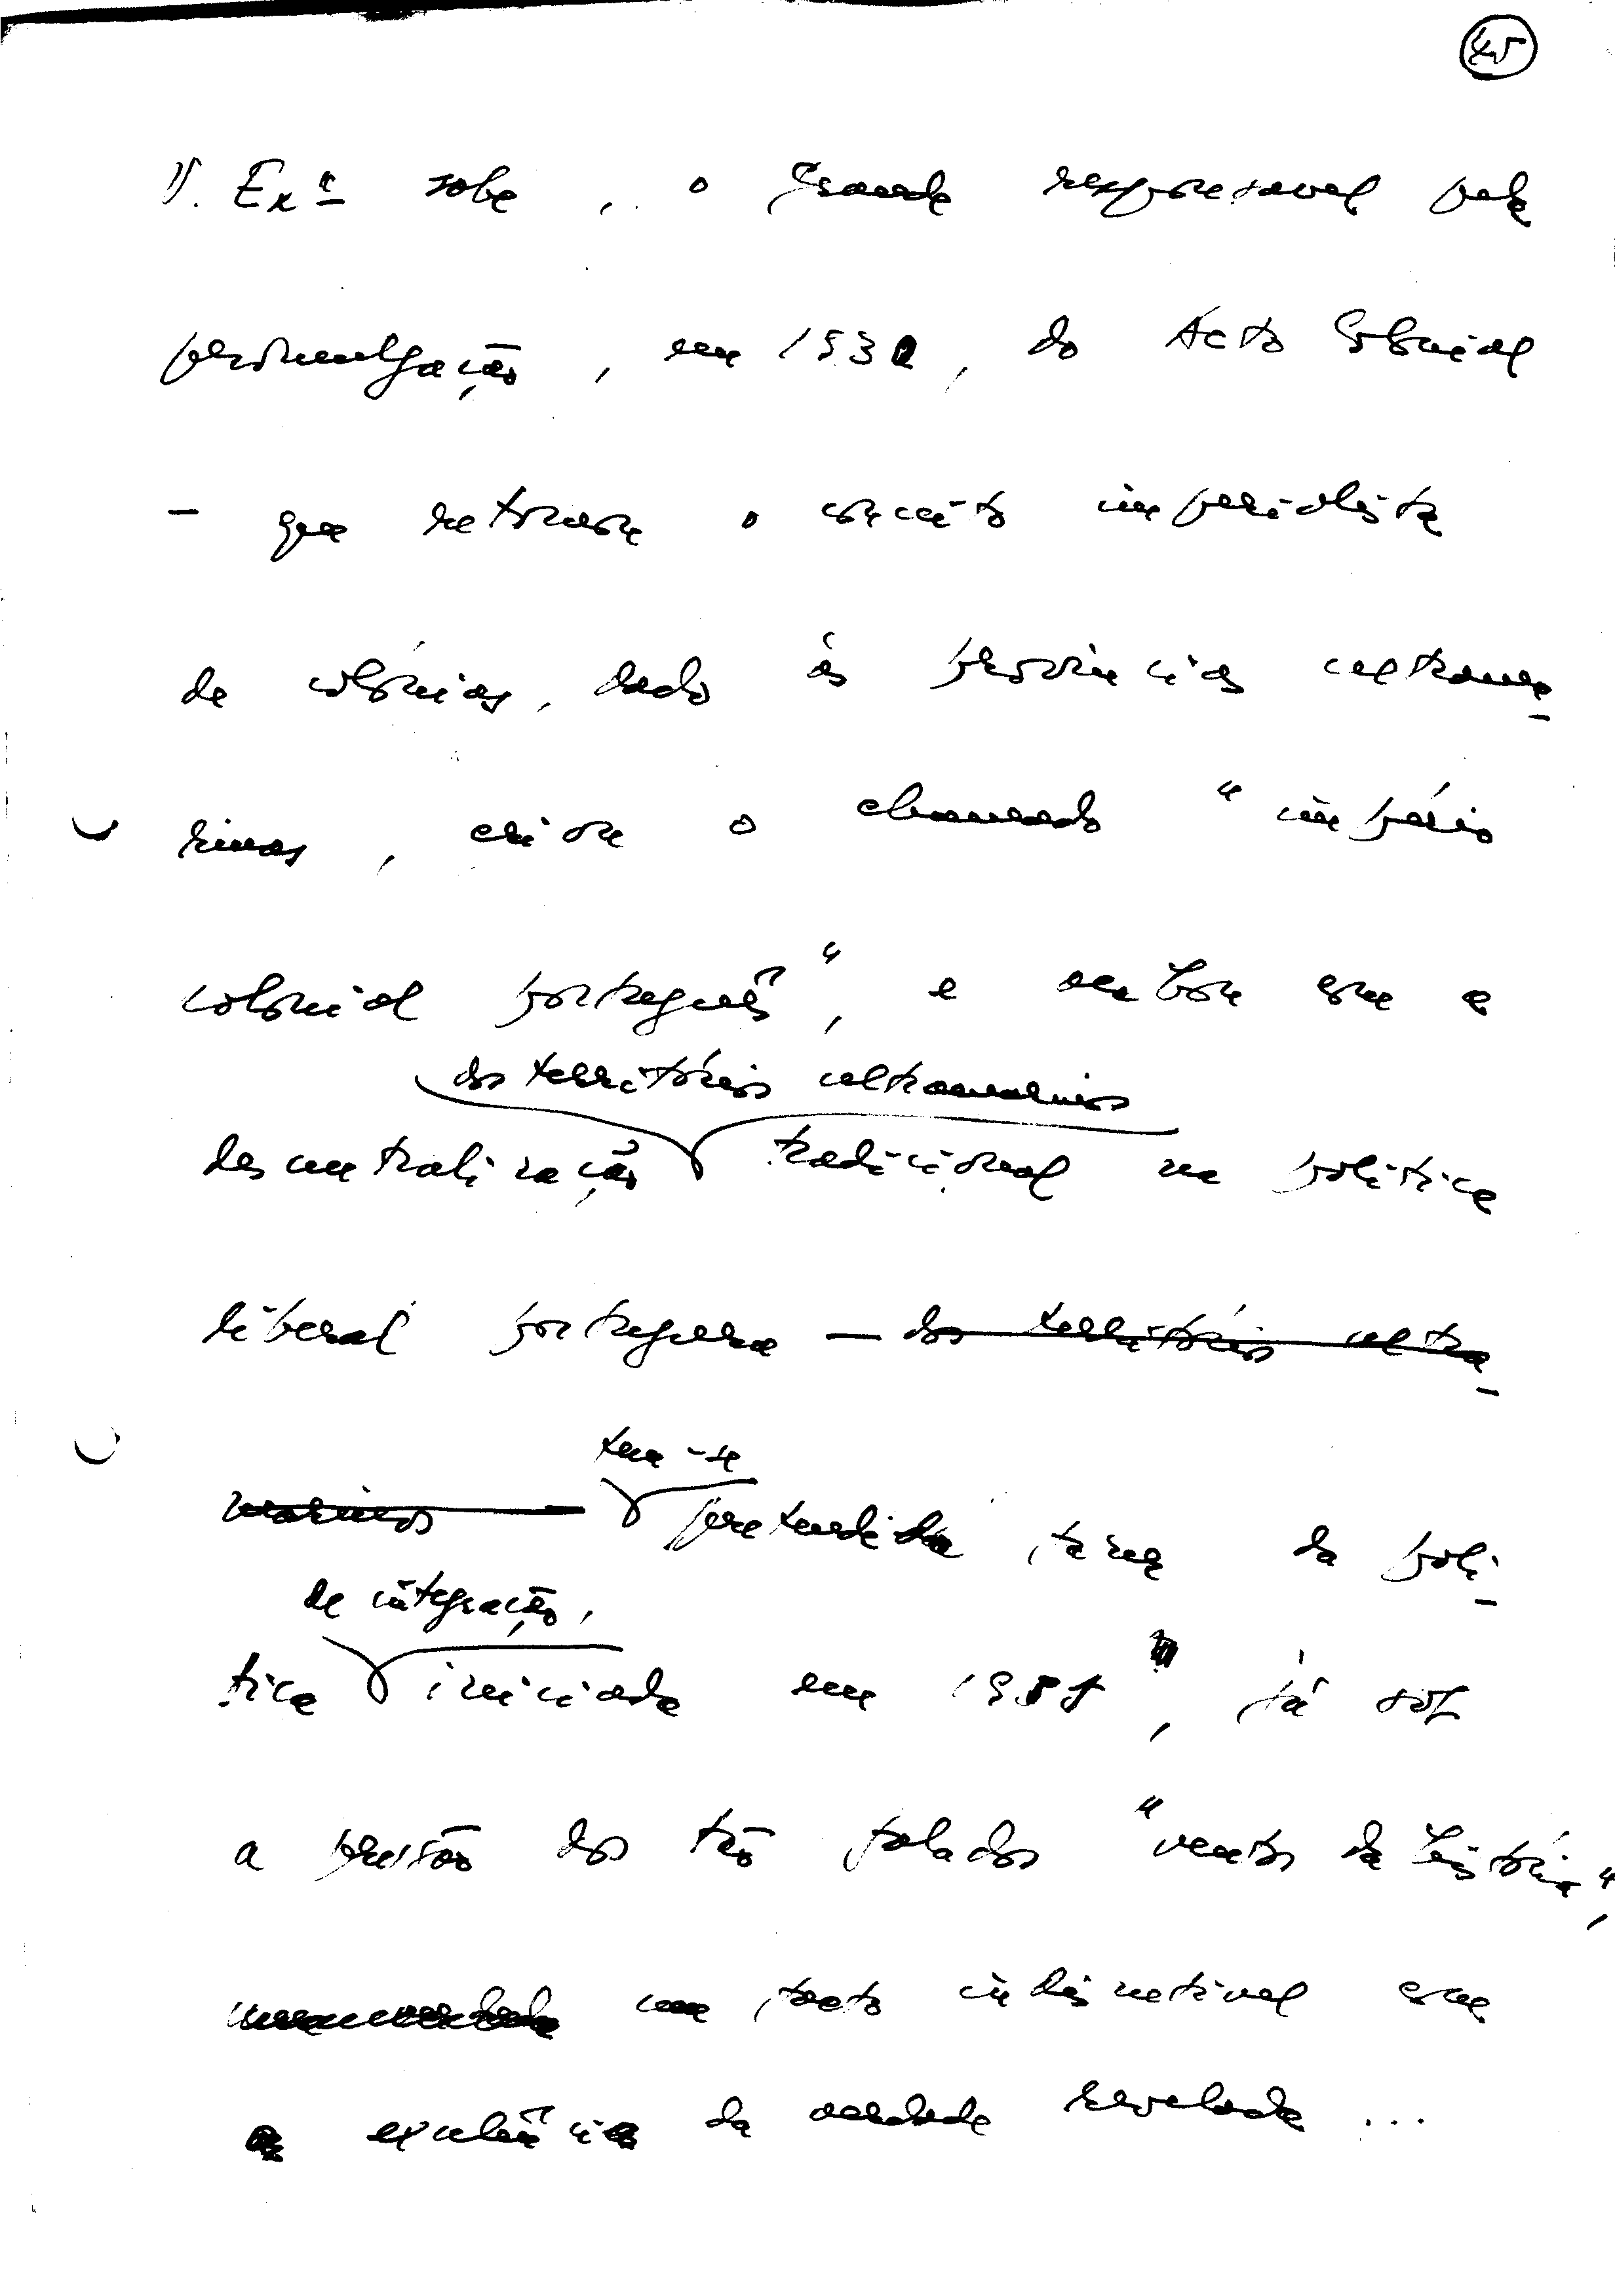 45
V. Exª sabe, o grande responsavel pela
promulgação, em 1930, do Acto Colonial
- que retoma o conceito imperialista
de colónias, dado às províncias ultrama-
rinas, criou o chamado "império
colonial português", e acabou com a
dos territórios ultramarinos
descentralização tradicional na política
liberal portuguesa — dos territórios ultra-
marinos
tem-se
pretendido fazer da polí-
de integração,
tica iniciada em 1951, já sob
a pressão dos tão falados "ventos da história",
um facto indiscutível com
a excelência da verdade revelada ...